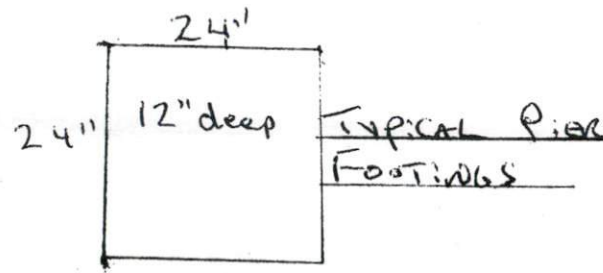 24"
24"
12" deep
TYPICAL PIER
FOOTINGS